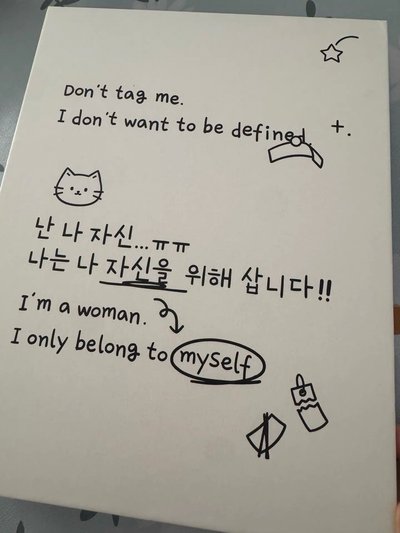 Don't tag me.
I don't want to be defined. +.
난 나 자신...ㅠㅠ
나는 나 자신을 위해 삽니다!!
I'm a woman.
I only belong to myself